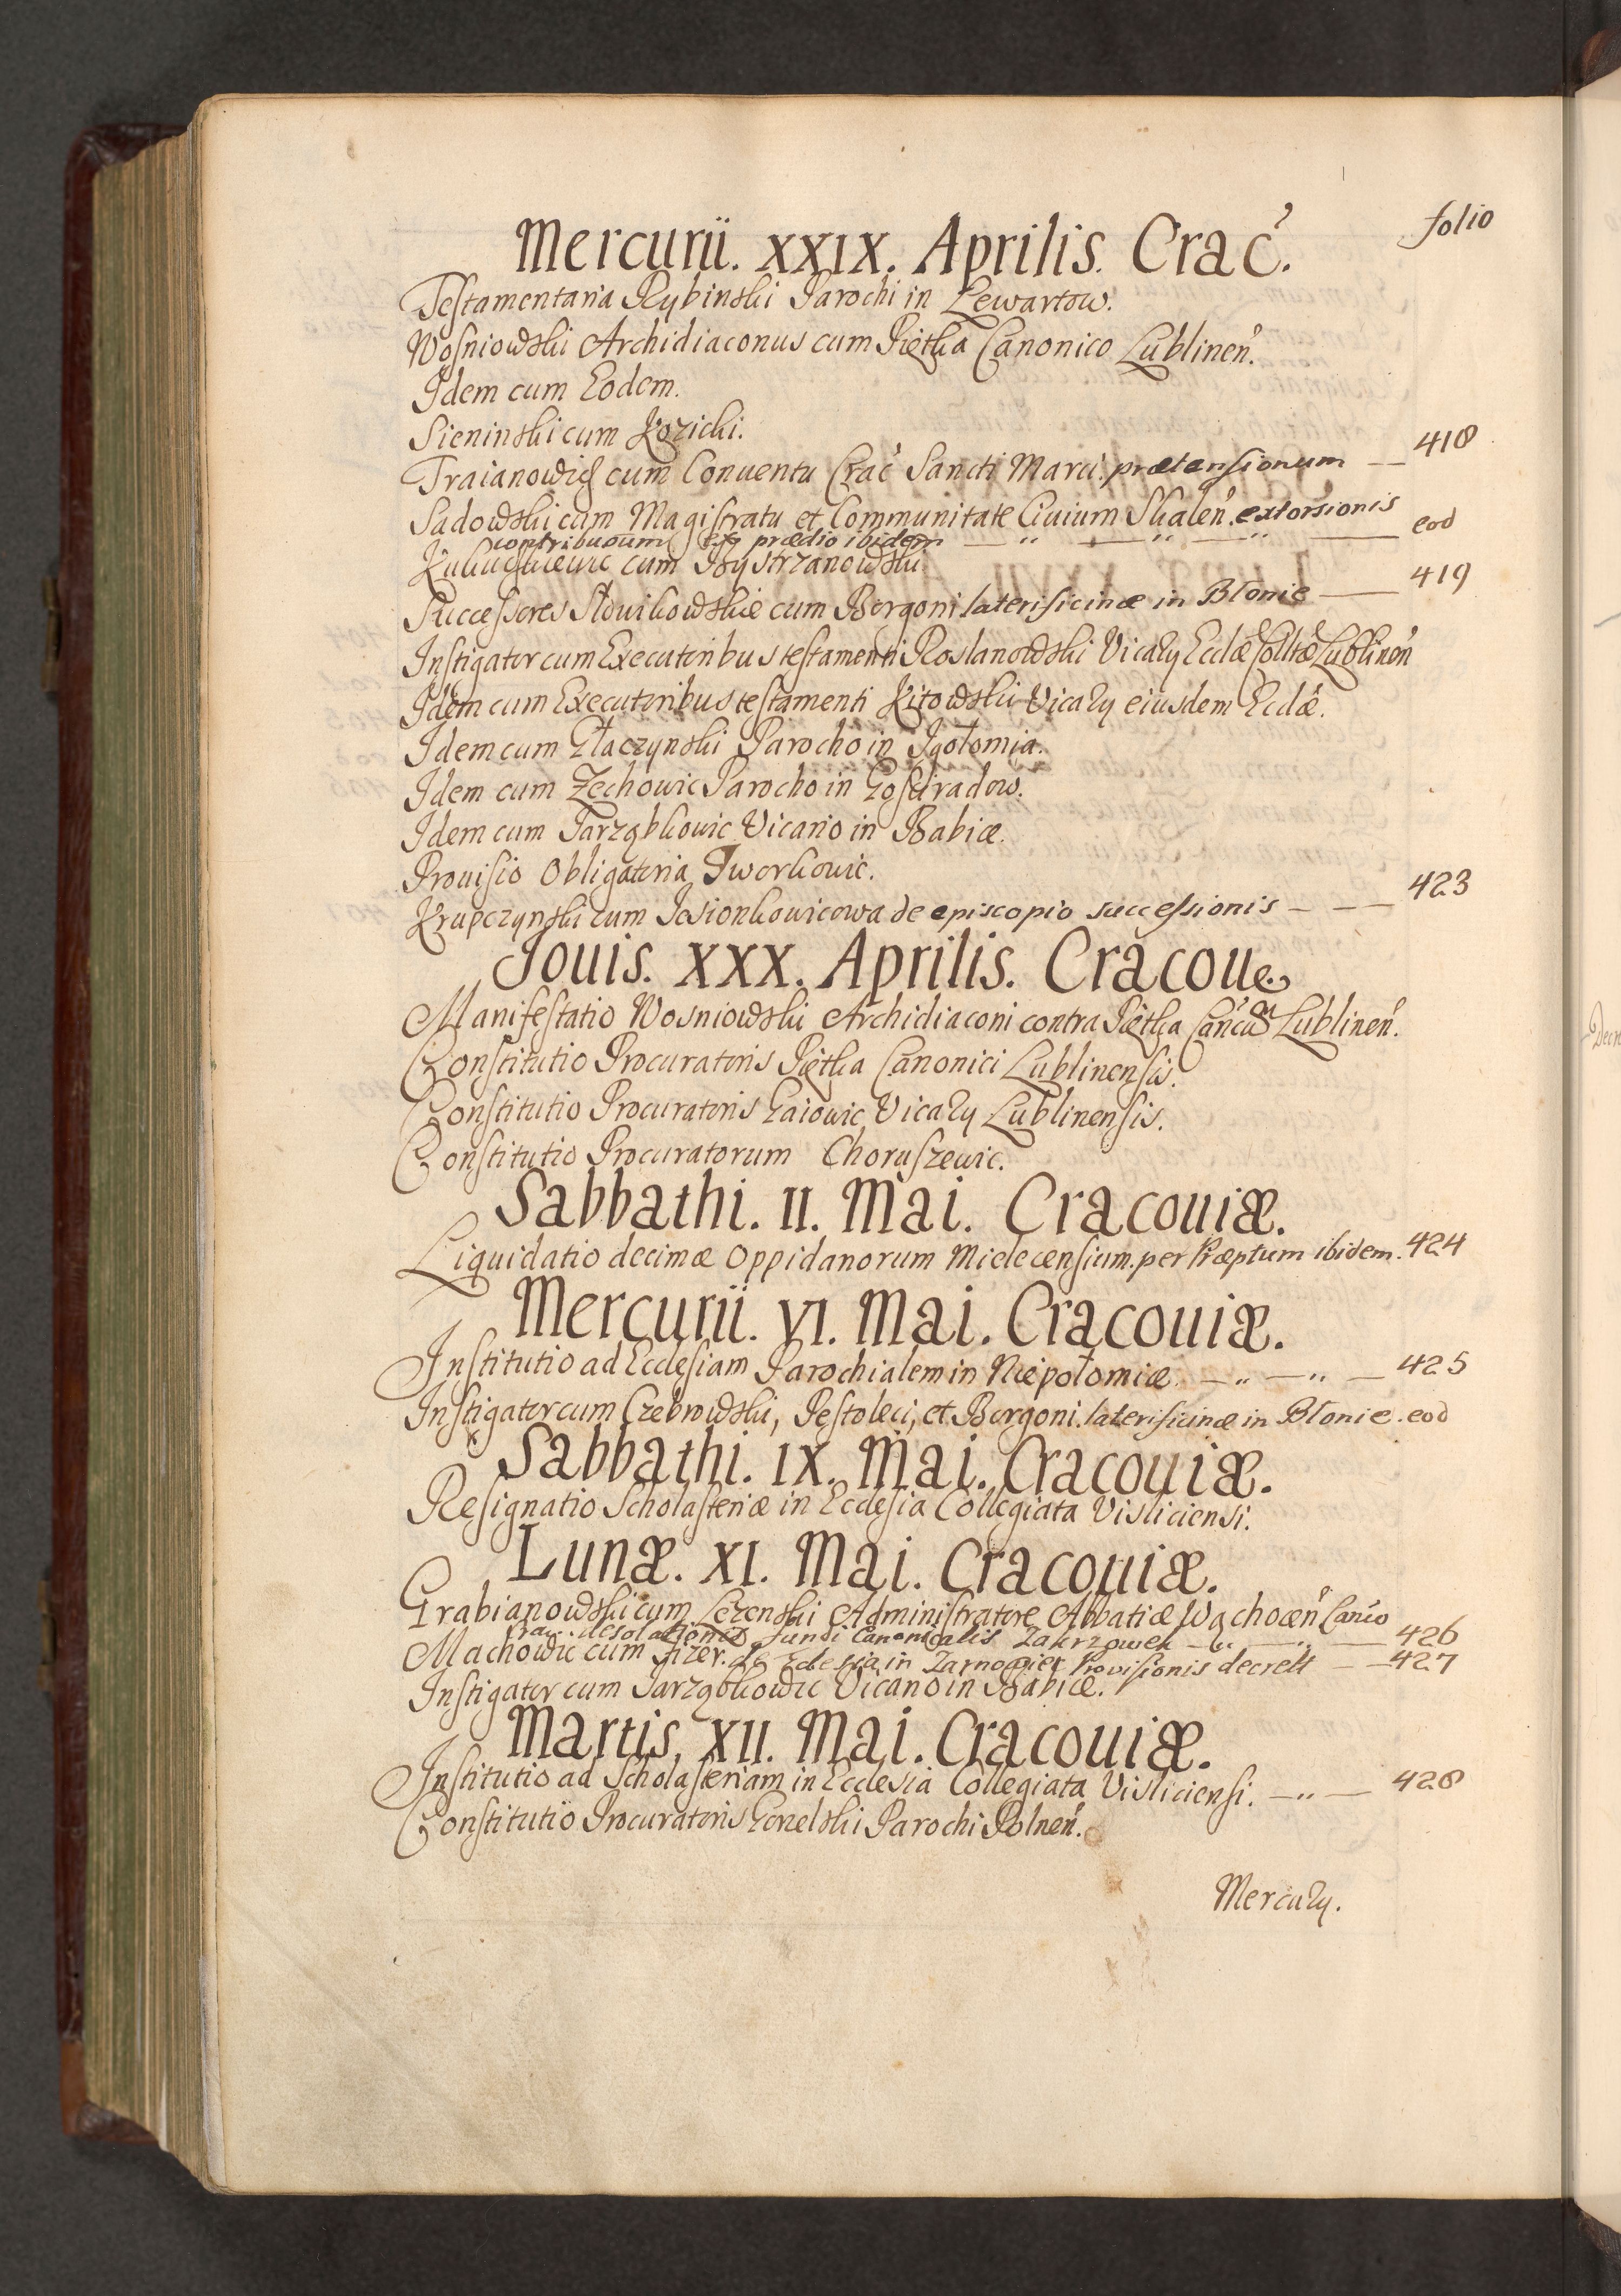 folio
Mercurii. XXIX. Aprilis. Crac.
Testamentaria Rybinski Parochi in Lewartow.
Wosniowski Archidiaconus cum Piętka Canonico Lublinen.
Idem cum Eodem.
Sieninski cum Kozicki.
Traianowic cum Conuentu Crac Sancti Marci. prætensionum — 418
Sadowski cum Magistratu et Communitate Ciuium Skalen. extorsionis
contribuoum ex prædio ibidem — " — " — " — eod
cum Bystrzanowski
Successores Słowikowskie cum Borgoni. laterificinæ in Błonie — 419
Instigator cum Executoribus testamenti Roslanowski Vicary Eccłæ Colltæ Lublinen
Idem cum Executoribus testamenti Kitowski Vicary eiusdem Eccłæ.
Idem cum Tłaczynski Parocho in Igołomia.
Idem cum Zechowic Parocho in Gosciradow.
Idem cum Parząbkowic Vicario in Babice.
Prouisio Obligatoria Tworkowic.
Krupczynski cum Jesionkowicowa de episcopio successionis — — — 423
Jouis. XXX. Aprilis. Cracouiæ
Manifestatio Wosniowski Archidiaconi contra Piętka Cancum Lublinen.
Constitutio Procuratoris Piętka Canonici Lublinensis.
Constitutio Procuratoris Gaiowic Vicary Lublinensis.
Constitutio Procuratorum Choruszewic.
Sabbathi. II. Mai. Cracouiæ.
Liquidatio decimæ Oppidanorum Mielecensium. per Præptum ibidem. 424
Mercurii. VI. Mai. Cracouiæ.
Institutio ad Ecclesiam Parochialem in Niepołomice. — " — " — 425
Instigator cum Czebrowski, Pestoleci, et Borgoni. laterificinæ in Błonie. eod
Sabbathi. IX. Mai. Cracouiæ.
Resignatio Scholasteriæ in Ecclesia Collegiata Visliciensi.
Lunæ. XI. Mai. Cracouiæ.
Grabianowski cum Lezenski Administratore Abbatiæ Wąchocen Canco
desolationis fundi Canonicalis Zakrzowek — " — " — 426
Machowic cum Fizer. de Ecclesia in Zarnowiec Prouisionis decreti — 427
Instigator cum Parząbkowic Vicario in Babice.
Martis. XII. Mai. Cracouiæ.
Institutio ad Scholasteriam in Ecclesia Collegiata Visliciensi. — " — 428
Constitutio Procuratoris Gorielski Parochi Polnen.
Mercury.